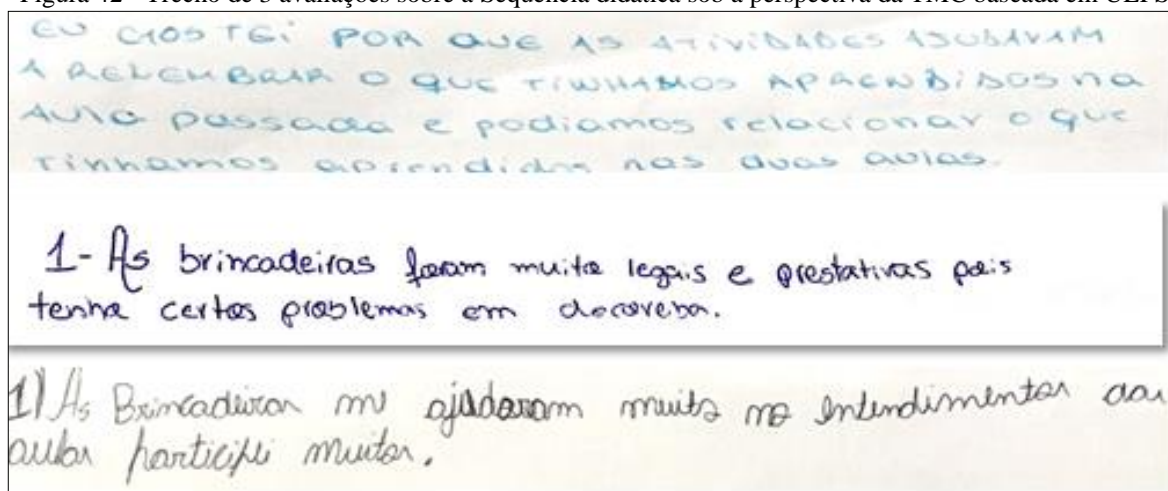 Figura 42 - Trecho de 3 avaliações sobre a Sequência didática sob a perspectiva da TMC baseada em UEPS
EU GOSTEI POR QUE AS ATIVIDADES AJUDAVAM
A RELEMBRAR O QUE TINHAMOS APRENDIDOS na
AULA passada e podiamos relacionar o que
tinhamos aprendidos nas duas aulas.
1- As brincadeiras foram muito legais e prestativas pois
tenho certos problemas em
1) As Brincadeiras me ajudaram muito no entendimento das
aulas participei muito.